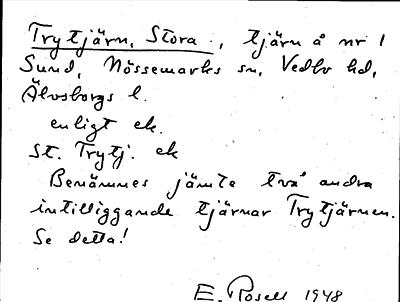 Trytjärn, Stora, tjärn å nr 1
Sund, Nössemarks sn, Vedbo hd,
Älvsborgs l.
enligt ek.
St. Trytj. ek
Benämnes jämte två andra
intilliggande tjärnar Trytjärnen.
Se detta!
E. Rosell 1948